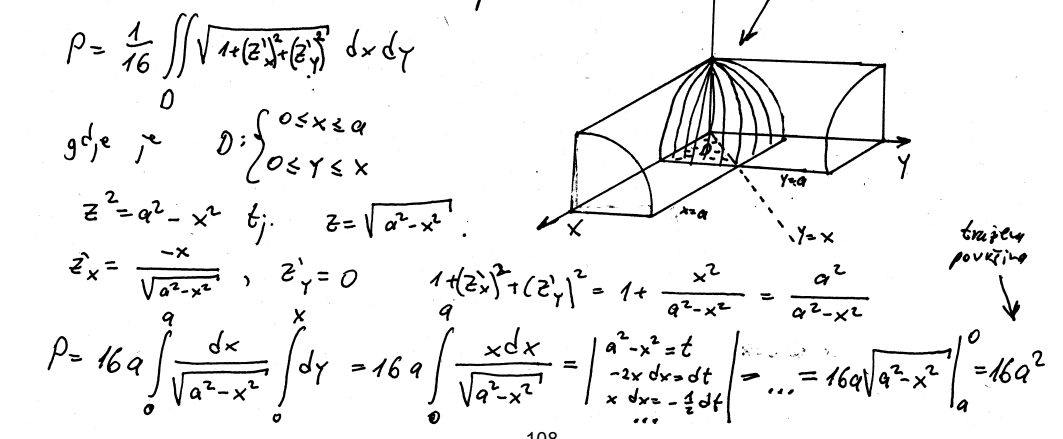 P = 1/16 ∬_D √(1+(z'_x)²+(z'_y)²) dx dy
gdje je D: { 0≤x≤a
0≤y≤x
z² = a² - x² tj. z = √(a²-x²).
z'_x = -x/√(a²-x²) , z'_y = 0   1+(z'_x)²+(z'_y)² = 1 + x²/(a²-x²) = a²/(a²-x²)
P = 16a ∫_0^a dx/√(a²-x²) ∫_0^x dy = 16a ∫_0^a xdx/√(a²-x²) = | a²-x²=t
-2x dx=dt
x dx = -1/2 dt
... | = ... = 16a √(a²-x²) |_a^0 = 16a²
D
Y
y=a
x=a
X
y=x
tražena
površina
108